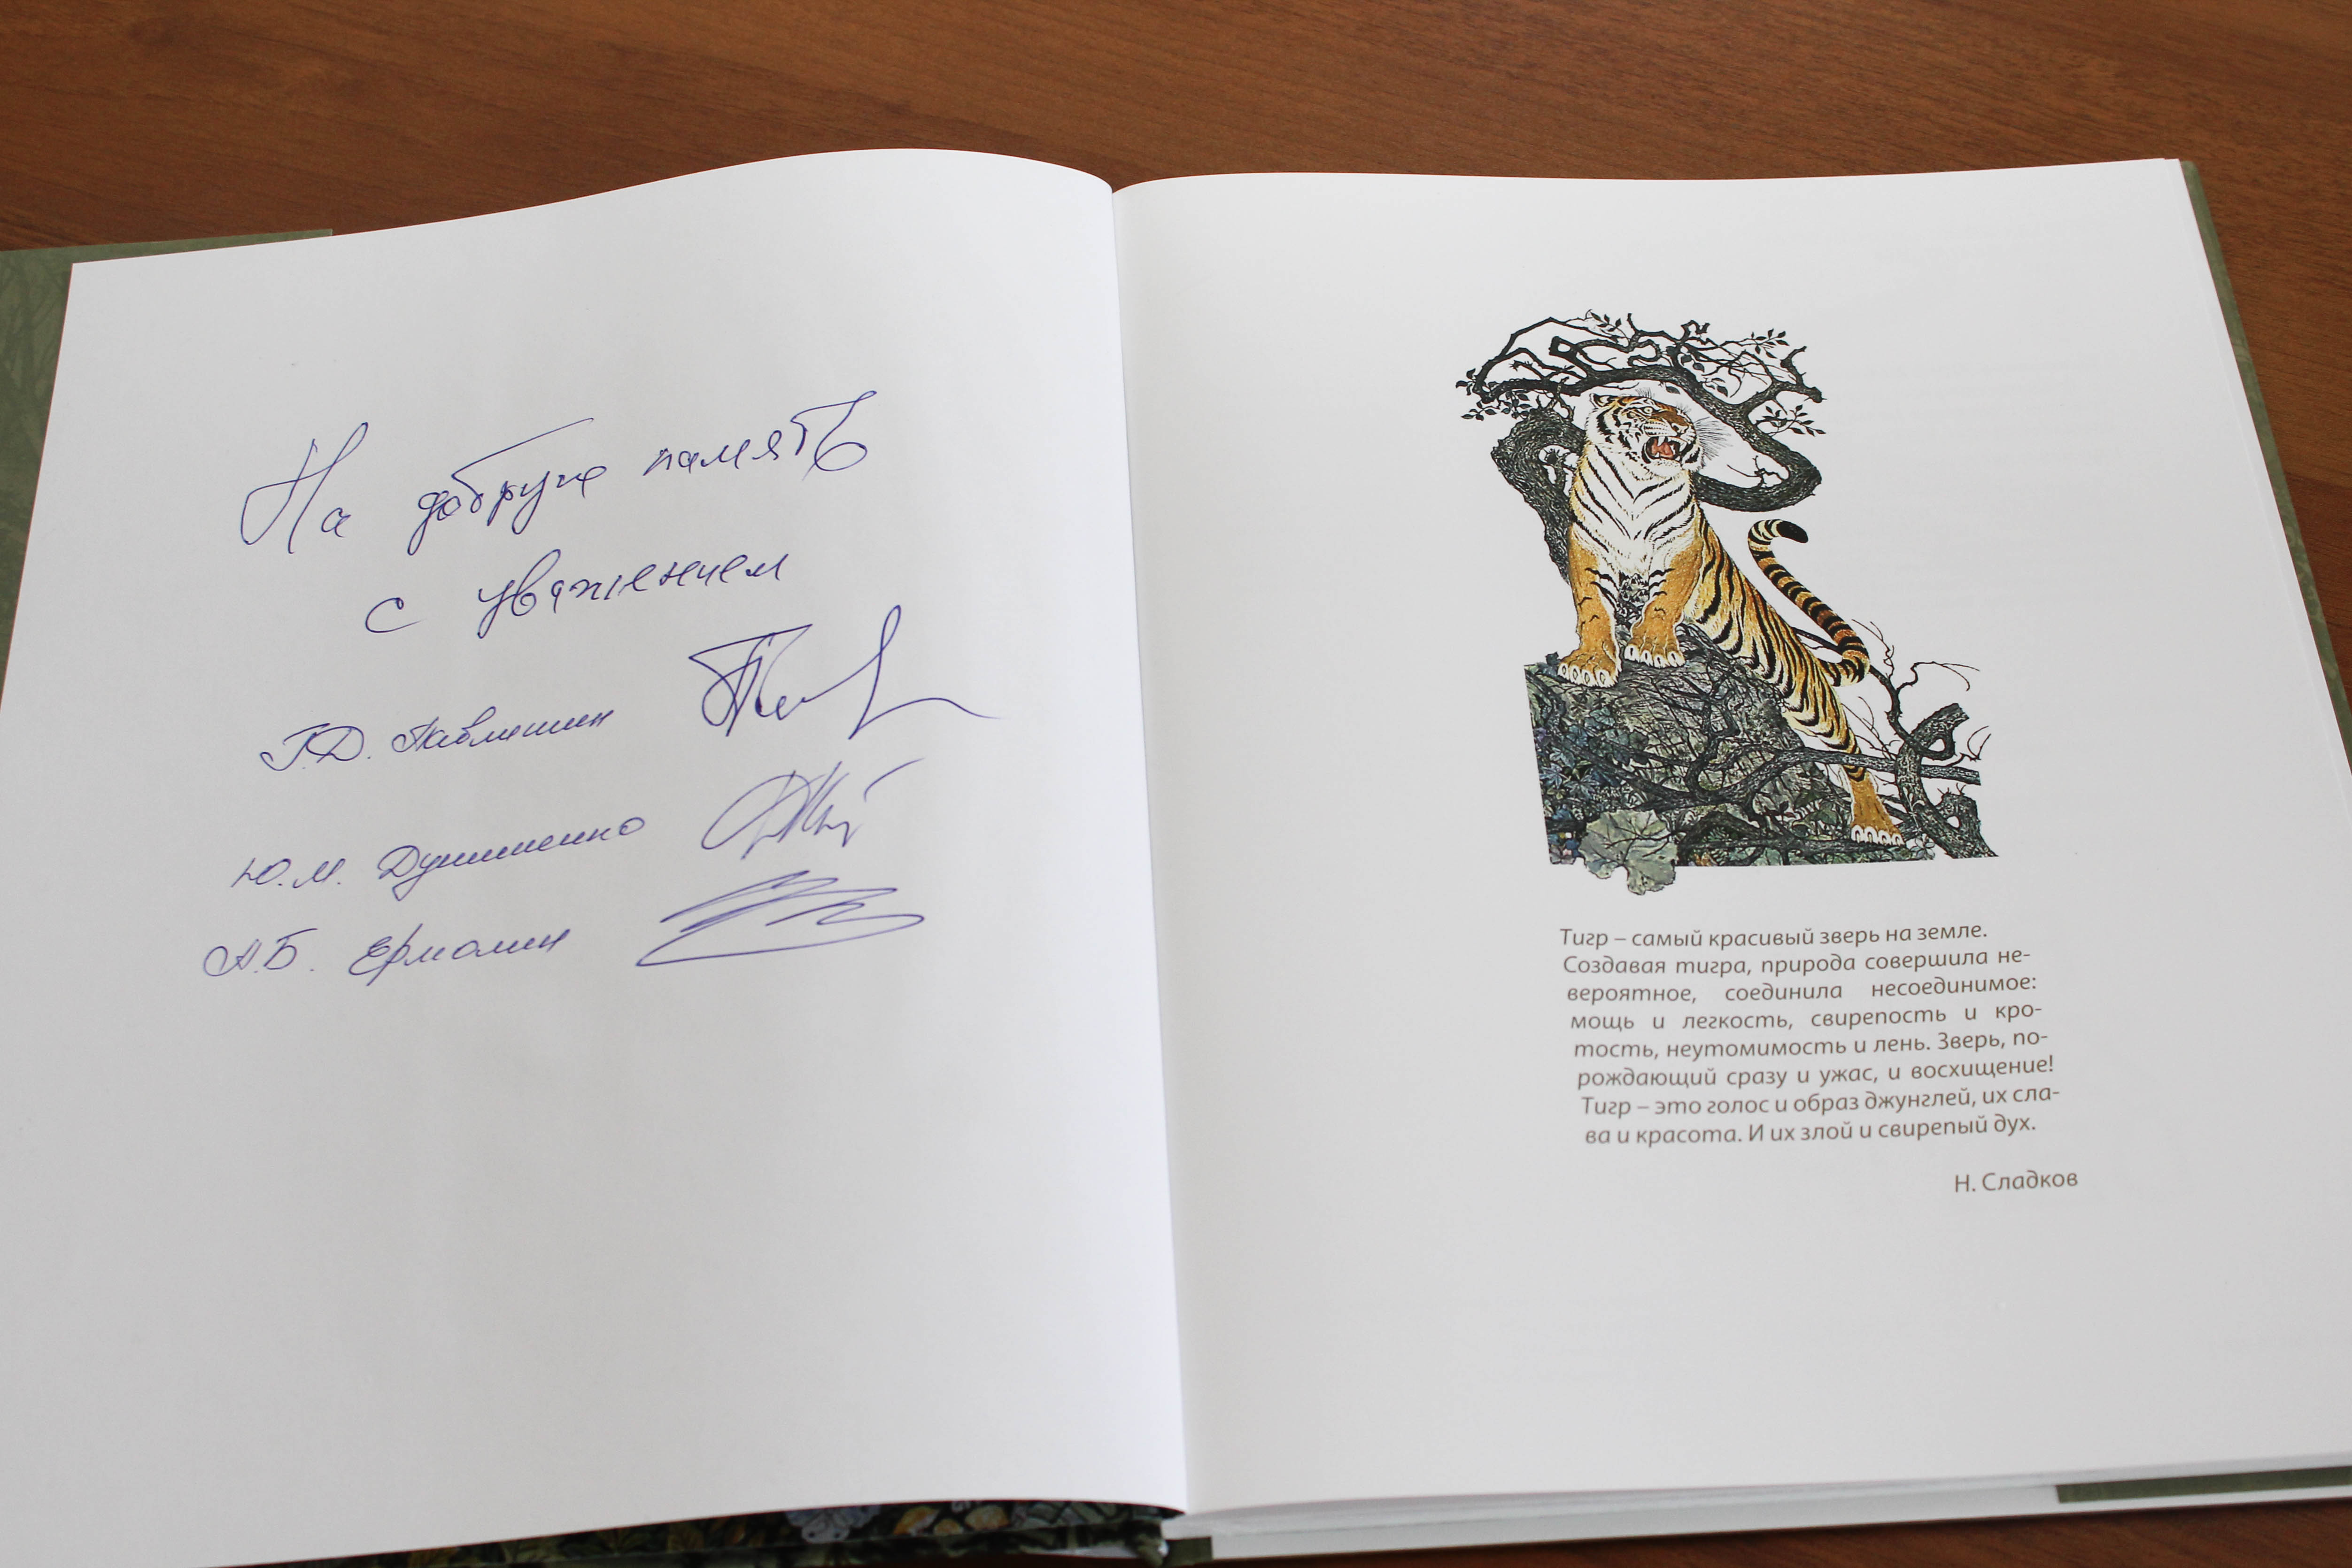 На добрую память
с уважением
Г.Д. Павлишин
Ю.М. Дунишенко
А.Б. Ермолин
Тигр – самый красивый зверь на земле.
Создавая тигра, природа совершила не-
вероятное, соединила несоединимое:
мощь и легкость, свирепость и кро-
тость, неутомимость и лень. Зверь, по-
рождающий сразу и ужас, и восхищение!
Тигр – это голос и образ джунглей, их сла-
ва и красота. И их злой и свирепый дух.
Н. Сладков